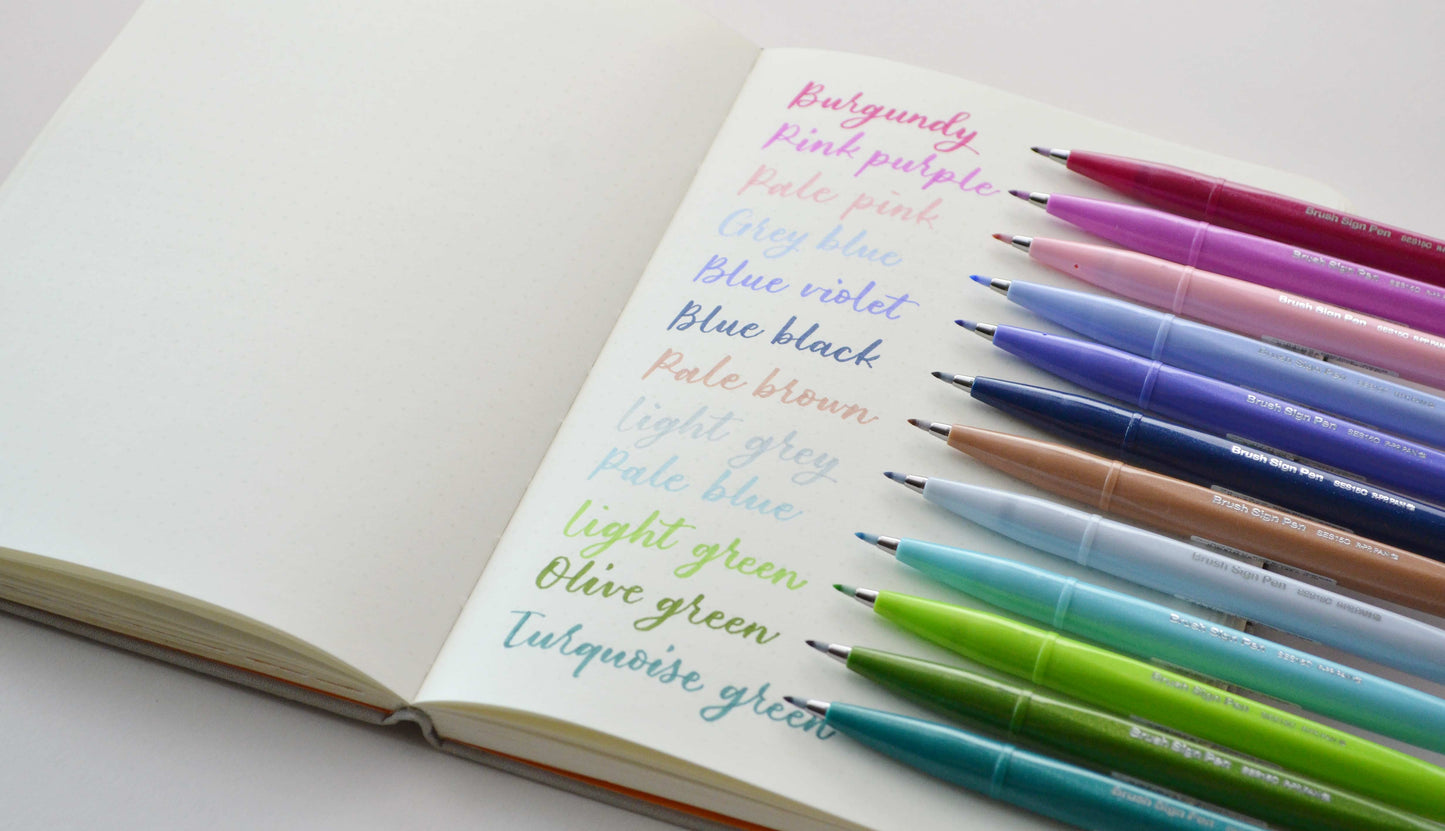 Burgundy
Pink purple
Pale pink
Grey blue
Blue violet
Blue black
Pale brown
light grey
Pale blue
light green
Olive green
Turquoise green
Brush Sign Pen SES15C
Brush Sign Pen SES15C
Brush Sign Pen SES15C
Brush Sign Pen
Brush Sign Pen SES15C
Brush Sign Pen SES15C
Brush Sign Pen SES15C
Brush Sign Pen SES15C
Brush Sign Pen SES15C
Brush Sign Pen
Brush Sign Pen SES15C
Brush Sign Pen